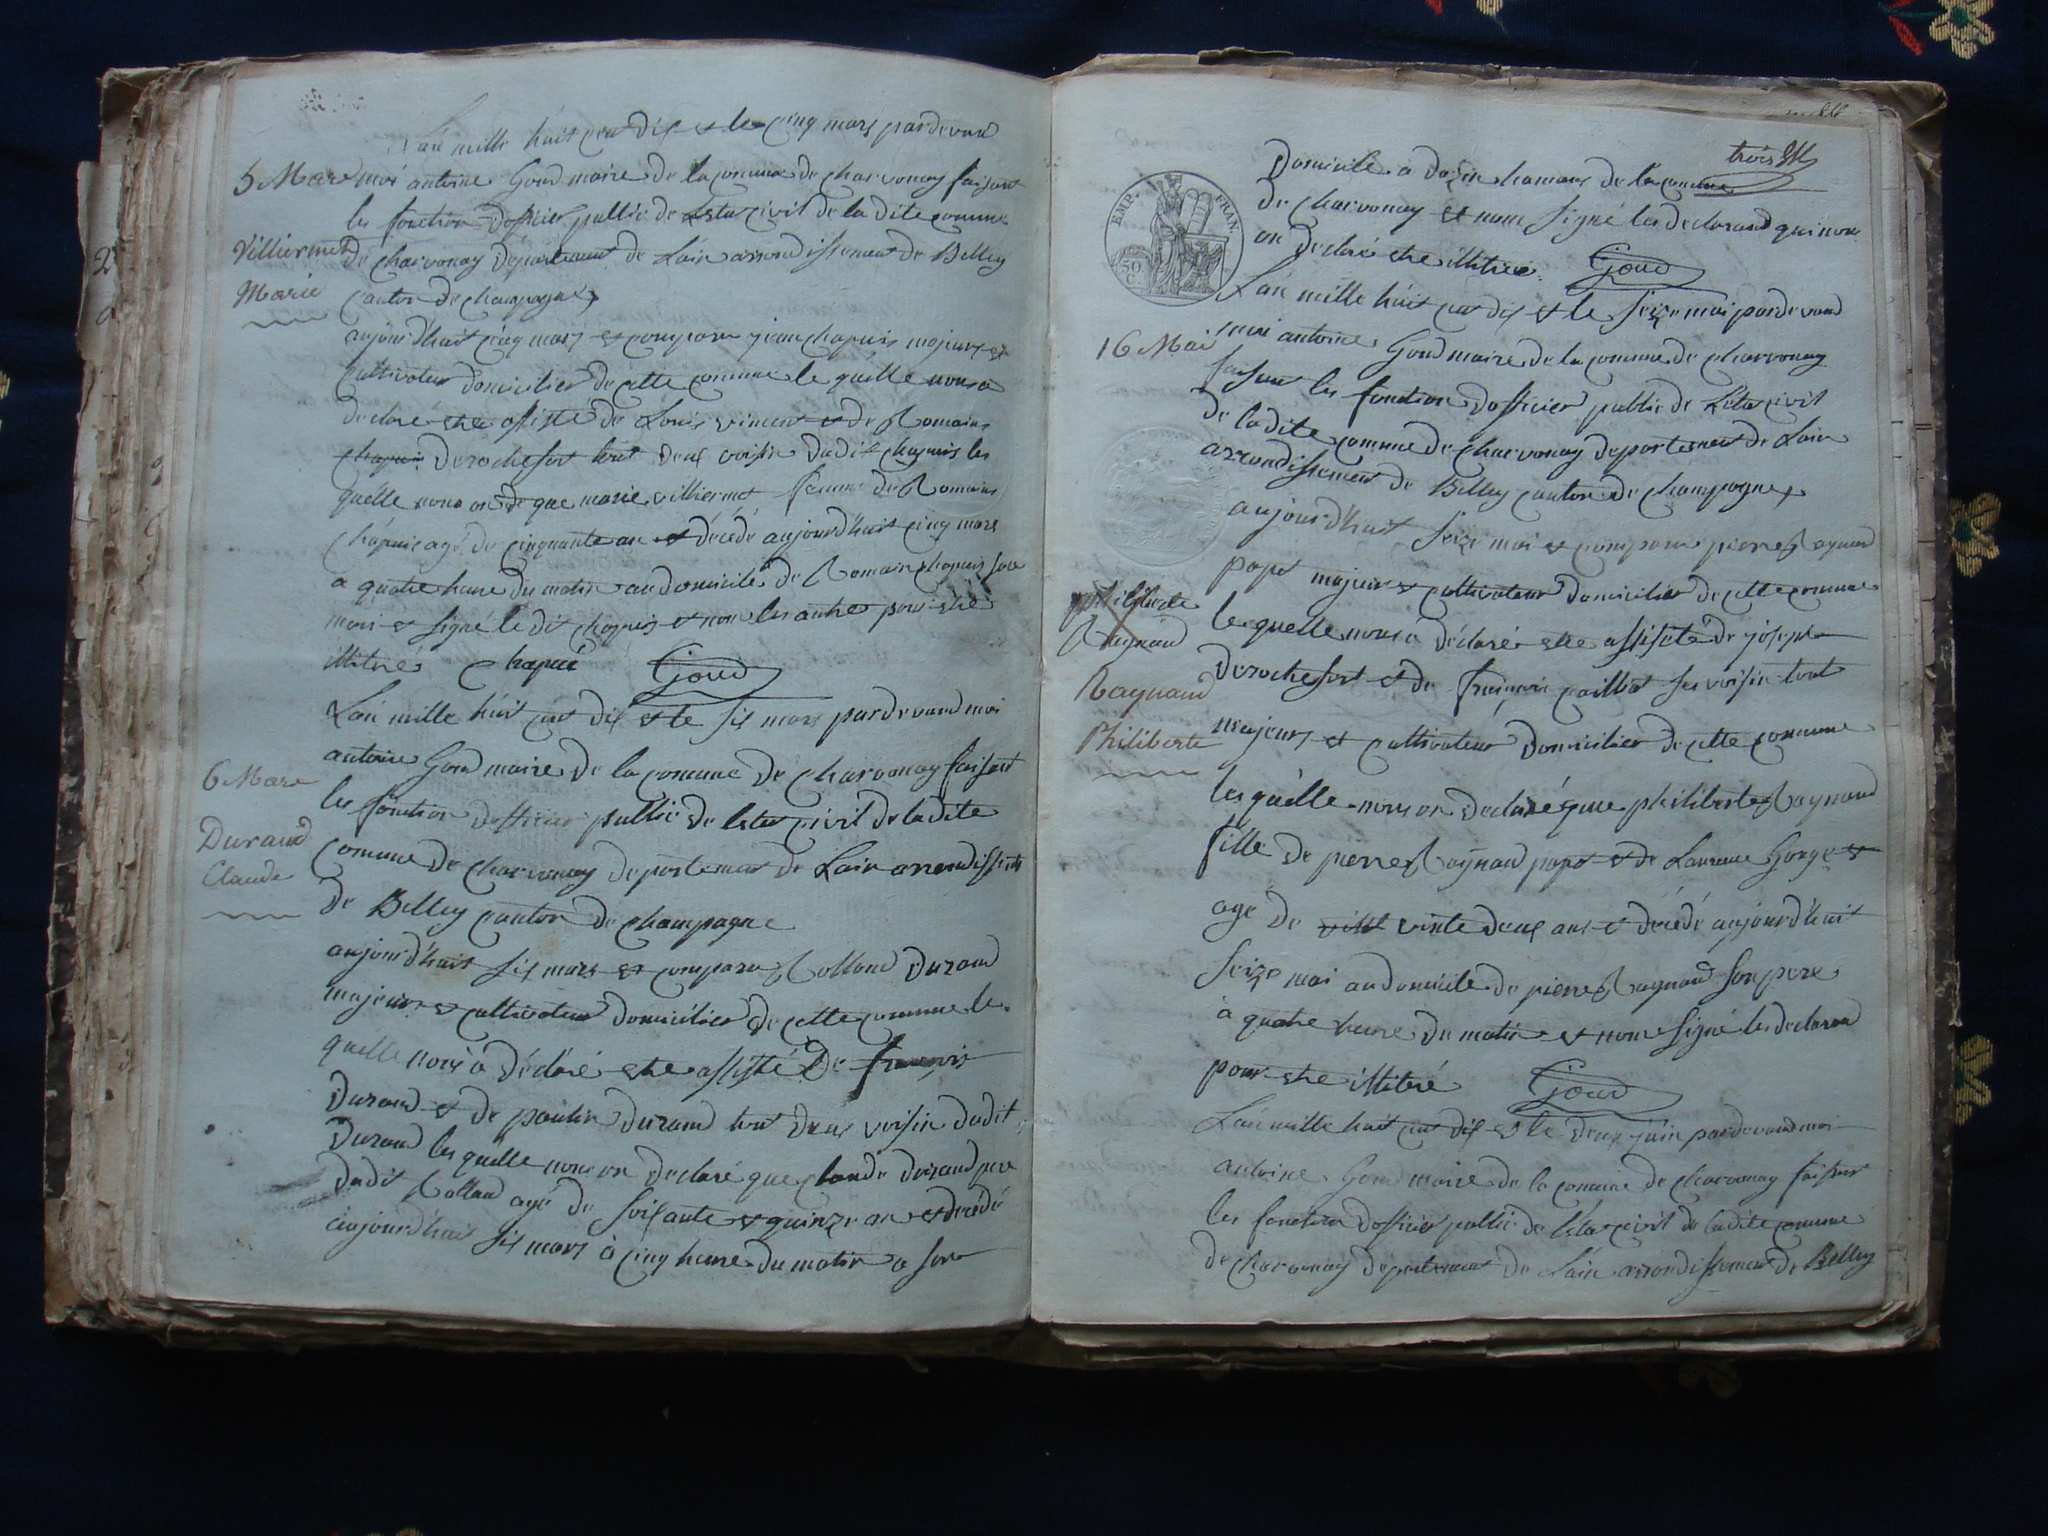 L'an mille huit cent dix et le cinq mars pardevand
5 Mars moi antoine Goud maire de la comune de charvonay faisant
les fonction dofficier public de Letat civil de la dite comune
Villiermet de charvonay département de Lain arrondissement de Belley
Marie canton de champagne
aujourd'huit cinq mars et comparu jean chapuis majeur et
cultivateur domicilier de cette comune le quelle nous a
declaré etre assisté de Louis vincent et de Romain
chapui Derochefort tout deux voisin dudit chapuis les
quelle nous on de que marie villiermet femme de Romain
chapuis agé de cinquante an et décédé aujourd'huit cinq mars
a quatre heure du matin au domicile de Romain chapuis son
mari et signé le dit chapuis et non les autre pour etre
illitré chapuis Goud
L'an mille huit cent dix et le six mars pardevand moi
antoine Goud maire de la comune de charvonay faisant
6 Mars
les fonction dofficier public de letat civil de la dite
Durand
comune de charvonay departement de Lain arrondissement
Claude
de Belley canton de champagne
aujourd'huit six mars et comparu Rolland Durand
majeur et cultivateur domicilier de cette comune le
quelle nous a déclaré etre assisté De françois
Durand et de paulin Durand tout deux voisin dudit
Durand les quelle nous on declaré que claude Durand pere
dudit Rolland agé de soixante et quinze an et décédé
aujourd'huit six mars à cinq heure du matin a son
trois
Domicile a hamaus de la comune
EMP. FRAN.
de charvonay et nom signé les declarand qui nous
50 C.
on declaré etre illitré Goud
L'an mille huit cent dix et le seize mai pardevand
16 Mai moi antoine Goud maire de la comune de charvonay
faisant les fonction dofficier public de Letat civil
de la dite comune de charvonay departement de Lain
arrondissement de Belley canton de champagne
aujourd'huit seize mai et comparu pierre Raynaud
papot majeur et cultivateur domicilier de cette comune
philiberte
le quelle nous a déclaré etre assisté de joseph
Raynaud
derochefort et de françois caillot ses voisin tout
Raynaud
majeurs et cultivateur domicilier de cette comune
Philiberte
les quelle nous on declaré que philiberte Raynaud
fille de pierre Raynaud papot et de Laurance Gorge et
age de vint vinte deux ans et décédé aujourd'huit
seize mai au domicile de pierre Raynaud son pere
à quatre heure du matin et nom signé les declarand
pour etre illitré Goud
L'an mille huit cent dix et le deux juin pardevand moi
antoine Goud maire de la comune de charvonay faisant
les fonction dofficier public de letat civil de la dite comune
de charvonay departement de Lain arrondissement de Belley